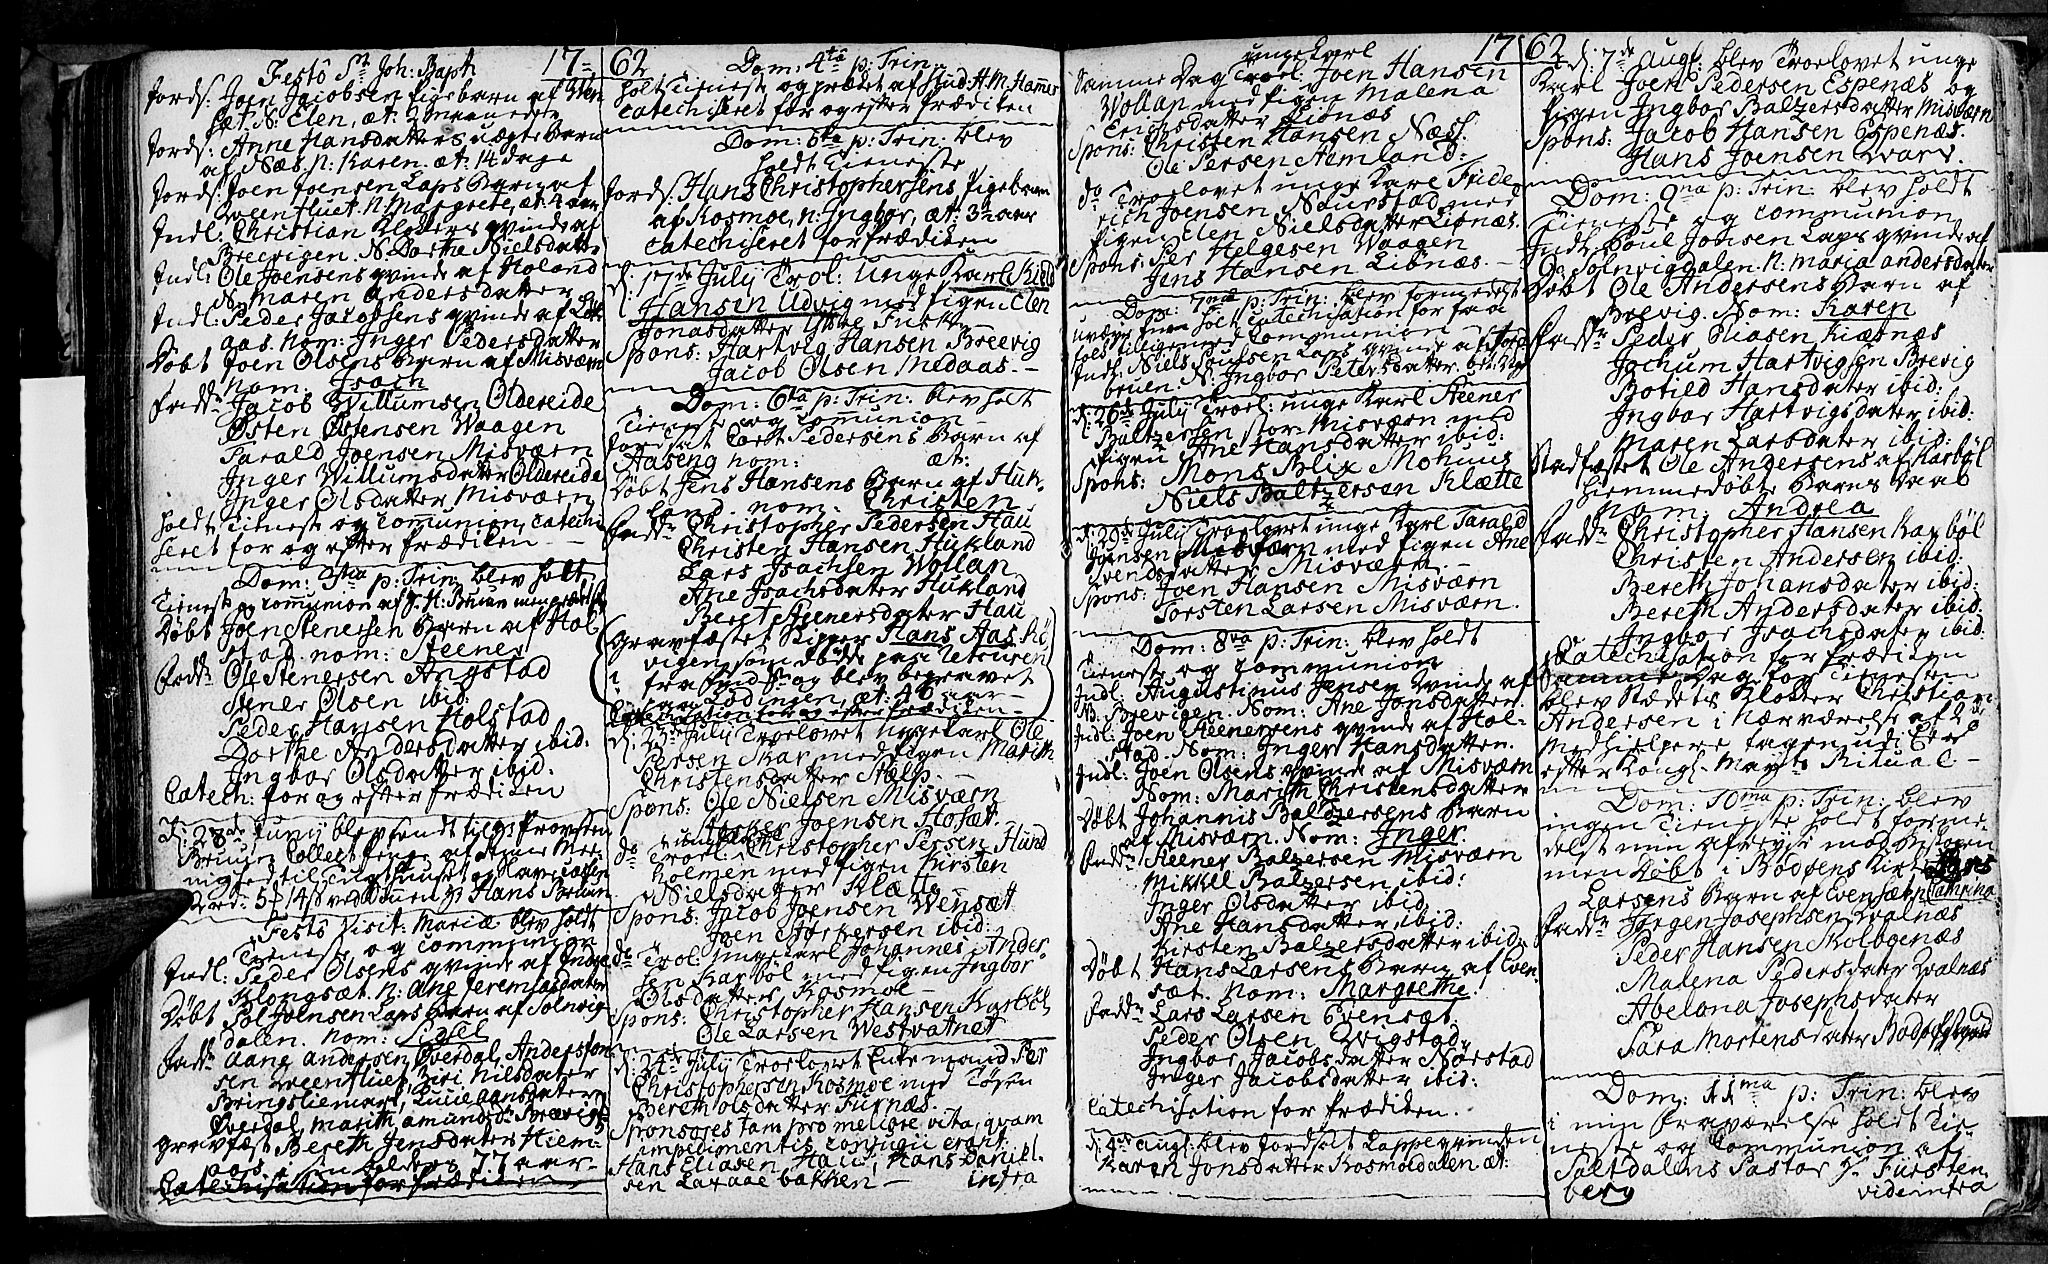 17 62
Festô St Joh: Baph
Jords: Joen Jacobsen Pigebarn af Sten
sæt N: Elen, æt: 2 maaneder
Jords: Anne Hansdatters uægte Barn
af Næs. n: Karen. æt: 14 dage
Jords: Joen Joensen Laps Barn af
n: Margrete, æt: 4 aar
Indl: Christian Klokers qvinde af
Breevigen. N: Dorthe Nielsdatter
Indl: Ole Joensens qvinde af Holand
N: Maren Andersdatter
Indl: Peder Jacobsens qvinde af
aas nom: Inger Pedersdatter
Døbt Joen Olsens Barn af Misværn
nom: Isach
Fadd: Jacob Willumsen Oldereide
Østen Østensen Waagen
Tarald Joensen Misværn
Inger Willumsdatter Oldereide
Inger Olsdatter Misværn
holdt Tieneste og communion, catechi
seret for og efter Prædiken
Dom: 3tia p: Trin: blev holt
Tieneste og communion af H: Bruun
Døbt Joen Stenersen Barn af Hol
stad. nom: Steener
Fadd: Ole Stenersen Angstad
Stener Olsen ibid:
Peder Hansen Holstad
Dorthe Andersdatter ibid:
Ingbor Olsdatter ibid:
Catech: for og efter Prædiken
D: 28de Juny blev sendt til Hr Provsten
Bruun Collect
5 14 ß ved Hans Bruun
Festô Visit: Mariæ blev holdt
Tieneste og communion
Indl: Peder Olsens qvinde af Indre
Klongsæt. n: Ane Jeremiasdatter
Døbt Pol Joensen Laps Barn af Solvvig
dalen. nom:
Fadd: Aane Andersen Överdal, Anders
sen Biri Nilsdater
Överdal, Marith Amunds: Brævig
gravfæst Bereth Jensdater Hiem
aas, sin alder 77 aar
Catechisation for Prædiken

Dom: 4ta p: Trin:
holt Tieneste og prædket af Stud: H M Hamer
catechiseret før og efter Prædiken
Dom: 5ta p: Trin: blev
holdt Tieneste
Jords: Hans Christophersens Pigebarn
af Kosmoe, n: Ingbor, æt: 3½ aar
catechiseret for Prædiken
D: 17de July Trol: Unge Karl Kield
Hansen Udvig med Pigen Elen
Jonasdatter
Spons: Hartvig Hansen Breevig
Jacob Olsen Medaas.
Dom: 6ta p: Trin: blev holt
Tieneste og Communion
Jordsat Pedersens Barn af
Aaseng nom: æt:
Døbt Jens Hansens Barn af Huk
land. nom: Christen
Fadd: Christopher Pedersen Hau
Christen Hansen Hukland
Lars Isachsen Wollan
Ane Isachsdater Hukland
Beret Steenersdater Hau
Gravfæstet Skipper Hans Aas
vigen, som døde paa Udreisen
fra og blev begravet
paa Lodingen, æt: 46 aar
Catechisation for og efter Prædiken
D: 23de July Troelovet Ungekarl Ole
Persen Skar med Pigen Marith
Christensdatter Stølp.
Spons: Ole Nielsen Misværn
Joensen Hosæt.
do Trol: Christopher Persen Hund
holmen med Pigen Kirsten
Nielsdater Klætte
Spons: Jacob Joensen Wensæt
Joen ibid:
do Trol: Ungekarl Johannes Ander
sen Karbøl med Pigen Ingbor
Olsdatter Kosmoe
Spons: Christopher Hansen Karbøl
Ole Larsen Westvatnet
July Troelovet Enkemand Per
Christophersen Kosmoe med
Bereth Olsdatter Furnæs.
Sponsores tam pro meliore vita, quam
impedimentis conjugii erant:
Hans Eliasen, Hau, Hans Daniel
sen bakken infra

17 62
unge karl
Samme Dag Troel: Joen Hansen
Wollan med Pigen Malena
Erichsdatter Libnæs
Spons: Christen Hansen Næss:
Ole Persen Aamland:
do Troelovet unge karl Fride
rich Joensen Naurstad med
Pigen Elen Nielsdatter Libnæs.
Spons: Per Helgesen Waagen
Jens Hansen Libnæs.
Dom: 7ma p: Trin: blev formedelst
holt catechisation for faa
folk tilligemed Communion
Indl: Niels Laps qvinde af
bruen. N: Ingbor Petersdatter
D: 26de July Troel: unge Karl Steener
Baltzersen stor-Misværn med
Pigen Ane Hansdatter ibid:
Spons: Mons Blix Mohuus
Niels Baltzersen Klætte
D: 29de July Troelovet unge Karl Tarald
Misværn med Pigen Ane
Svendsdatter Misværn
Spons: Joen Hansen Misværn
Torsten Larsen Misværn.
Dom: 8va p: Trin: blev holdt
Tieneste og communion
Indl: Augustinus Jensen qvinde af
Brevigen. Nom: Ane Jonsdatter
Indl: Joen Steenersens qvinde af Hol-
stad. Nom: Inger Hansdatter.
Indl: Joen Olsens qvinde af Misværn
Nom: Marith Christensdatter
Døbt Johannis Baltzersens Barn
af Misværn. Nom: Inger.
Fadd: Steener Balzersen Misværn
Mikkel Balzersen ibid:
Inger Olsdatter ibid
Ane Hansdatter ibid:
Kirsten Balzersdatter ibid:
Døbt Hans Larsens Barn af Even
sæt. nom: Margrethe.
Fadd: Lars Larsen Evensæt.
Peder Olsen Qvigstad
Ingbor Jacobsdatter Nørstad
Inger Jacobsdatter ibid:
Catechisation for Prædiken.
D: 4de Aug: blev Jordsadt Lappeqvinden
Karen Jonsdatter Kosmoldalen æt:

D: 7de Aug: blev Troelovet unge
Karl Joen Pedersen Espenæs og
Pigen Ingbor Balzersdatter Misværn
Spons: Jacob Hansen Espenæs.
Hans Joensen
Dom: 9na p: Trin: blev holdt
Tieneste og Communion
Indl: Poul Jonsen Laps qvinde af
Solvvigdalen. n: Maria Andersdater
Døbt Ole Andersens Barn af
Brevig. Nom: Karen
Fadd: Peder Eliasen Kiæsnæs
Jochum Hartvigsen Brevig
Botild Hansdater ibid:
Ingbor Hartvigsdater ibid:
Maren Larsdater ibid:
Stadfæstet Ole Andersens af Karbøl
Hiemmedøbte Barns Daab
Nom: Andrea
Fadd: Christopher Hansen Karbøl
Christen Andersen ibid:
Bereth Johansdater ibid:
Bereth Andersdater ibid:
Ingbor Isachsdater ibid:
Catechisation for Prædiken
Samme Dag for Tienesten
blev Stædets Klokker Christian
Andersen i nærværelse af 2de
Medhielpere tagen udi Eed
efter Kongl: Mayts Ritual
Dom: 10ma p: Trin: blev
ingen Tieneste holdt forme
delst min afreyse mod Bispen
men Døbt i Bodøens Kirke
Larsens Barn af Evensæt n: Cathrina
Fadd: Jørgen Josephsen Qvalnæs
Peder Hansen Skolbgenæs
Malena Pedersdater Qvalnæs
Abelona Josephsdater
Sara Mortensdater
Dom: 11ma p: Trin: blev
i min fraværelse holdt Tie-
neste og Communion af
Saltdalens Pastor Hr Fürsten
berg vide infra